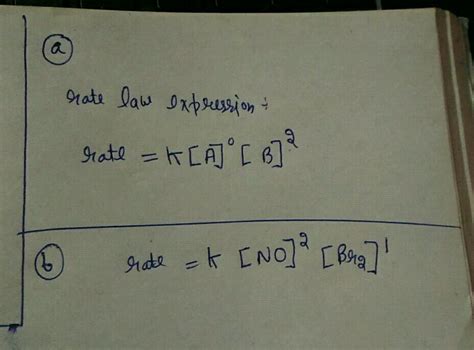 a
rate law expression :
rate = K[A]⁰ [B]²
b
rate = K [NO]² [Br₂]¹